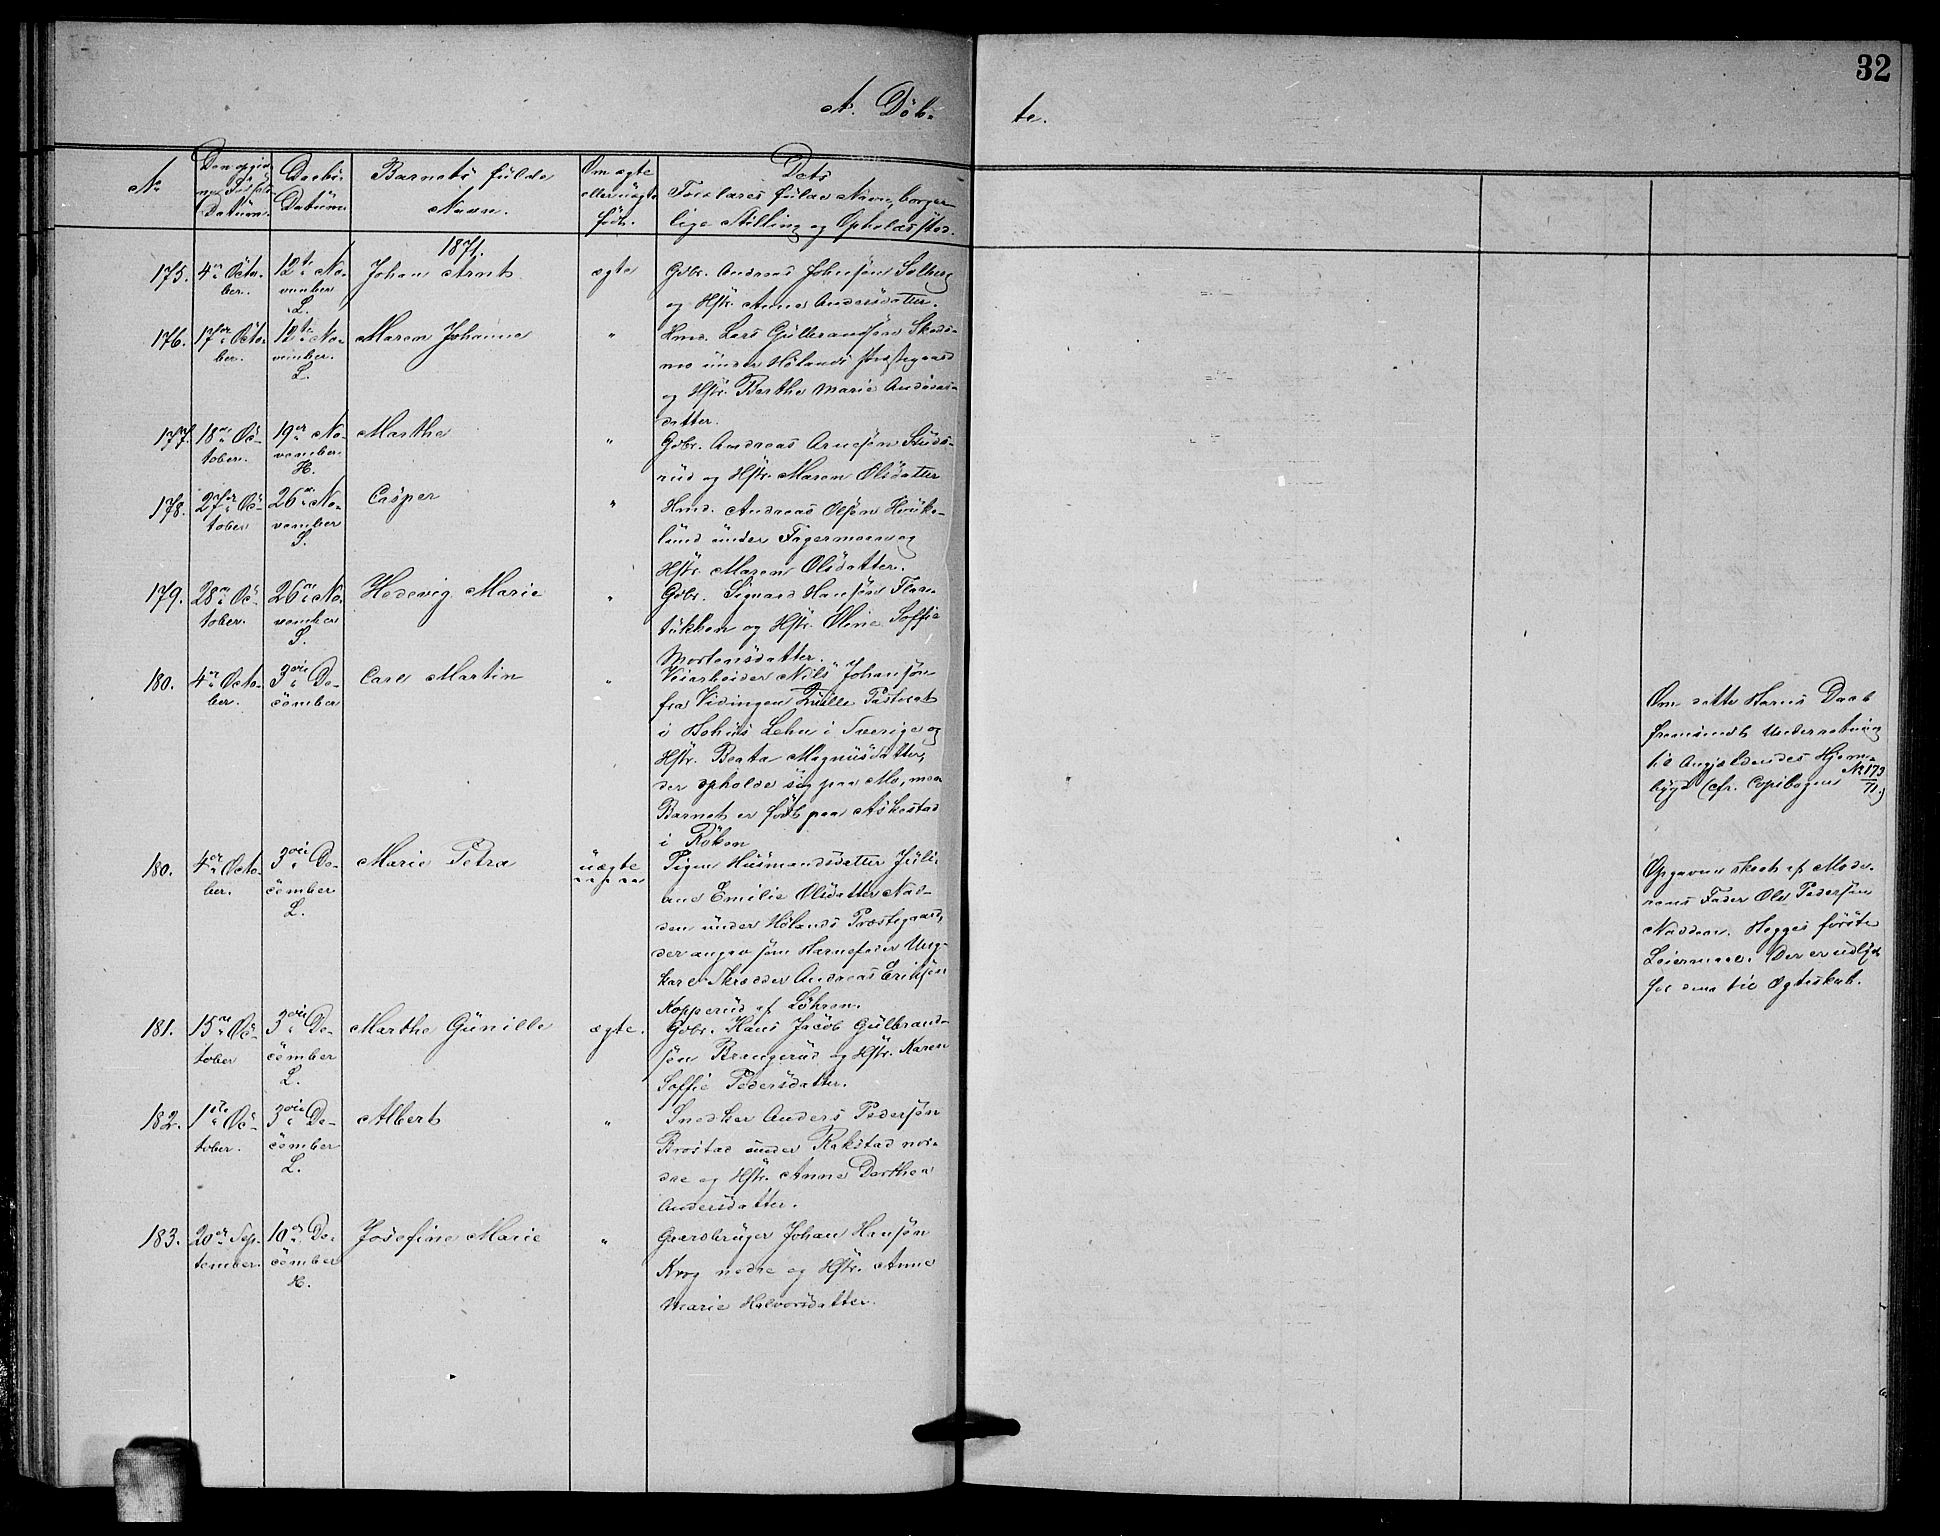 32
A. Döb-
te.
No
Den opgiv-
ne Fødsels
Datum.
Daabs-
Datum.
Barnets fulde
Navn.
Om ægte
eller uægte
født.
Dets
Forældres fulde Navn, borger-
lige Stilling og Opholdssted.
1871.
175.
4de Octo-
ber.
12te No-
vember
L.
Johan Arnt
ægte
Gdbr. Andreas Johnsøn Solberg
og Hstr. Anne Andersdatter.
176.
17de Octo-
ber.
12te No-
vember.
L.
Maren Johanne
"
Hmd. Lars Gulbrandsøn Skods-
mo under Hölands Præstegaard
og Hstr. Berthe Marie Andreas-
datter.
177.
18de Oc-
tober.
19de No-
vember.
H.
Marthe
"
Gdbr. Andreas Arnesøn Studs-
rud og Hstr. Maren Olsdatter
178.
27de Oc-
tober
26de No-
vember
S.
Casper
"
Hmd. Andreas Olsøn Hauke-
lund under Fagermoen og
Hstr. Maren Olsdatter.
179.
28de Oc-
tober.
26de No-
vember
S.
Hedevig Marie
"
Gdbr. Sigvard Hansøn Flaen-
tukken og Hstr. Oline Soffie
Mortensdatter.
180.
4de Octo-
ber.
3die De-
cember
Carl Martin
"
Veiarbeider Nils Johansøn
fra Vidingen Quille Pastorat
i Bohus Lehn i Sverige og
Hstr. Beata Magnusdatter,
der opholde sig paa Mo, men
Barnet er født paa Askestad
i Röken
Om dette Barns Daab
fremsendt Underretning
til Angjeldendes Hjem-
bygd (cfr. Copibogen No 173/71.)
180.
4de Octo-
ber.
3die De-
cember
L.
Marie Petra
uægte
Pigen Husmandsdatter Juli-
ane Emilie Olsdatter Nad-
den under Hölands Præstegaard,
der angav som Barnefader Ung-
karl Skrædder Andreas Eriksøn
Kopperud af Löhren.
Opgaven skeet af Mode-
rens Fader Ole Pedersøn
Nadden. Begges første
Leiermaal. Der er udlyst
for dem til Ægteskab.
181.
15de Oc-
tober
3die De-
cember
L.
Marthe Gunille
ægte.
Gdbr. Hans Jacob Gulbrand-
søn Brangerud og Hstr. Karen
Soffie Pedersdatter.
182.
1ste Oc-
tober.
3die De-
cember
L.
Albert
"
Snedker Anders Pedersøn
Brostad under Rakstad ne-
dre og Hstr. Anne Dorthea
Andersdatter.
183.
20de Sep-
tember.
10de De-
cember
H.
Josefine Marie
"
Gaardbruger Johan Hansøn
Krog nedre og Hstr. Anne
Marie Halvorsdatter.